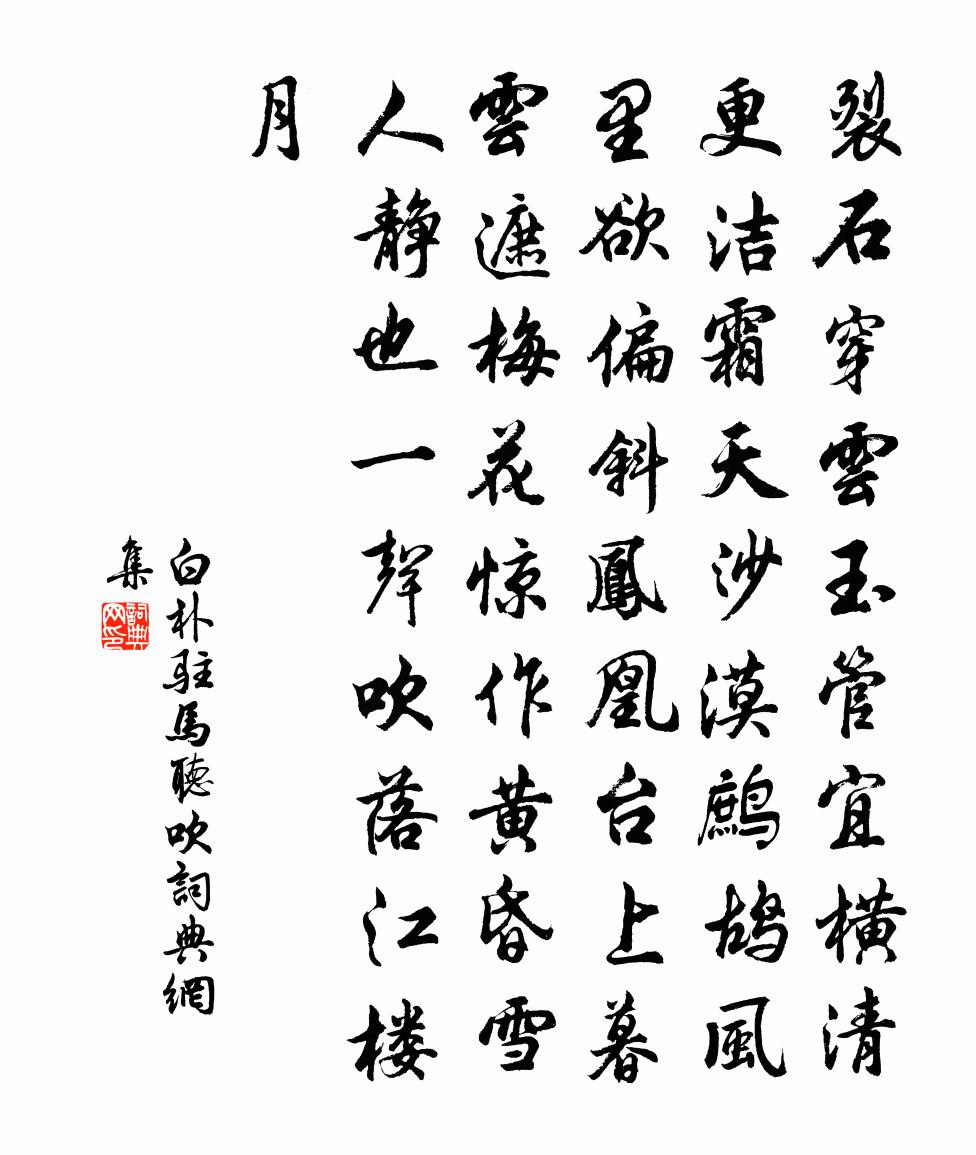 裂石穿雲玉管宜橫清
更洁霜天沙漠鷓鴣風
里欲偏斜鳳凰台上暮
雲遮梅花惊作黄昏雪
人靜也一聲吹落江楼
月
白朴駐馬聽吹詞典網
集
詞典网印